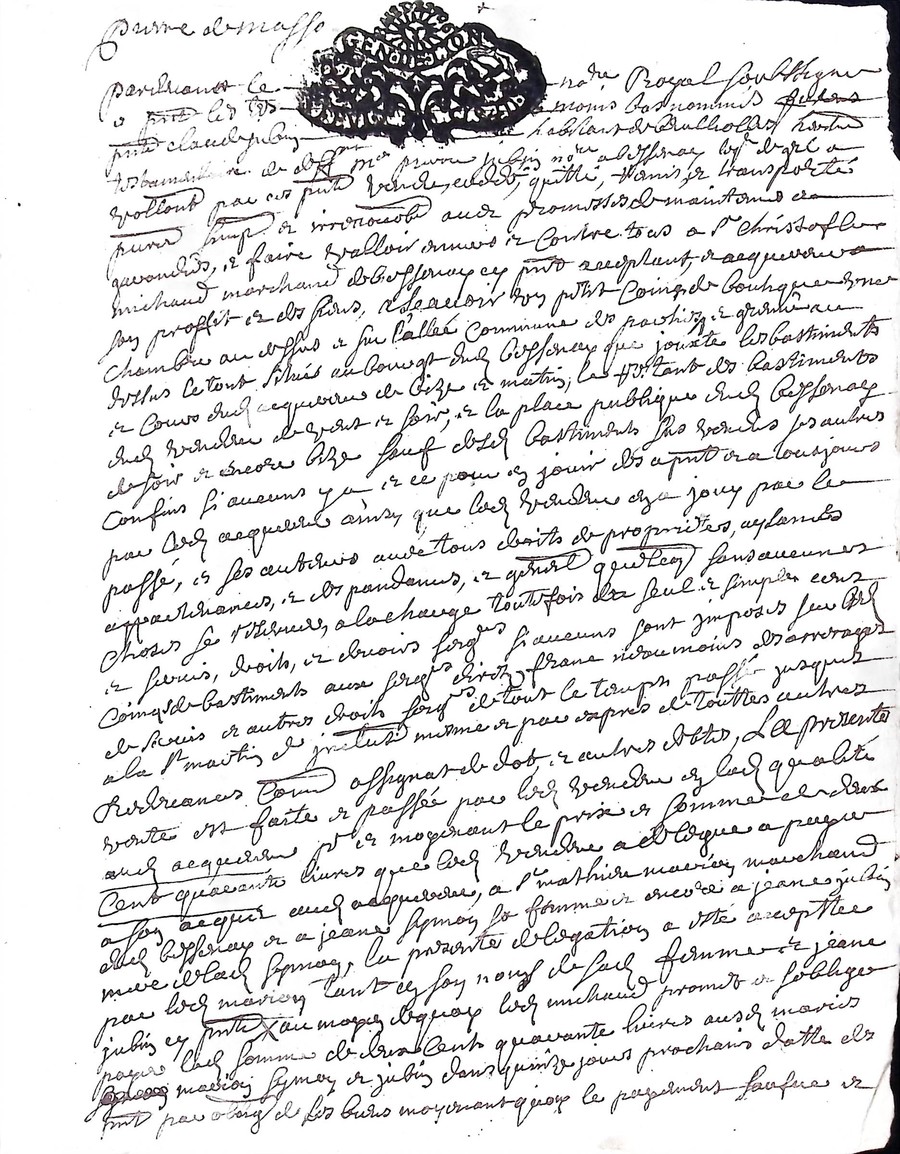 pierre de masso
GEN DE LION
pardevant le no.re Royal soubsigne
e pnt les tes moins bas nommés
pnt claude jubin habitant de heritier
testamentaire de deff.nt m.e pierre jubin no.re a bessenay lequel de gré a
vollonté par ces pnt vendu, ceddé, quitté, remis, et transporté
purem simp et irrevocab avec promesse de maintenir
garandir, et faire valloir envers et contre tous a s.r Christofle
michaud marchand de bessenay cy pnt acceptant, et acquereur a
son proffit et des siens, a sçavoir un petit Coing de boutique et une
chambre au dessus et sur l'allée commune des parties et grenier au
dessus le tout situés au bourgt dud bessenay que jouxte les bastiments
et Cours dud acquereur de bize et matin, le restant des bastiments
dud vendeur de vent et soir, et la place publique dud bessenay
de soir et encore bize sauf desd bastiments sus vendus ses autres
confins si aucuns y a et ce pour en jouir dès apnt et a tousjours
par led acquereur ainsy que led vendeur en a jouy par le
passé, et ses autheurs avec tous droits de proprietés, aysances
appartenances, et despandances, et generl quelcq sans aucunes
choses se reserver, a la charge toutefois du seul et simple cens
et servis, droits, et devoirs seig.x si aucuns sont imposés sur led
Coing de bastiments aux seig.rs directs, franc neaumoins des arrerages
de servis et autres droits seig.x de tout le temps passé jusques
a la s.t martin de incluse mesme et par exprès de touttes autres
Redevances assignat de dot, et autres debtes, La presente
vente est faitte et passée par led vendeur en lad qualité
aud acquereur p.r et moyenant le prix et somme de deux
Cent quarante livres que led vendeur a delegue a payer
a son acquit aud acquereur, a s.r mathieu marion marchand
dud bessenay et a jeane symon sa femme et encore a jeane jubin
mere de lad symon, la presente delegation a esté acceptée
par led marion tant en son nom que de sad femme et jeane
jubin cy pnte X au moyen de quoy led michaud promet et s'oblige
payer lad somme de deux Cents quarante livres ausd mariés
marion symon et jubin dans quinze jours prochains datte des
pnt par oblig de ses biens moyenant quoy le payement faisant et